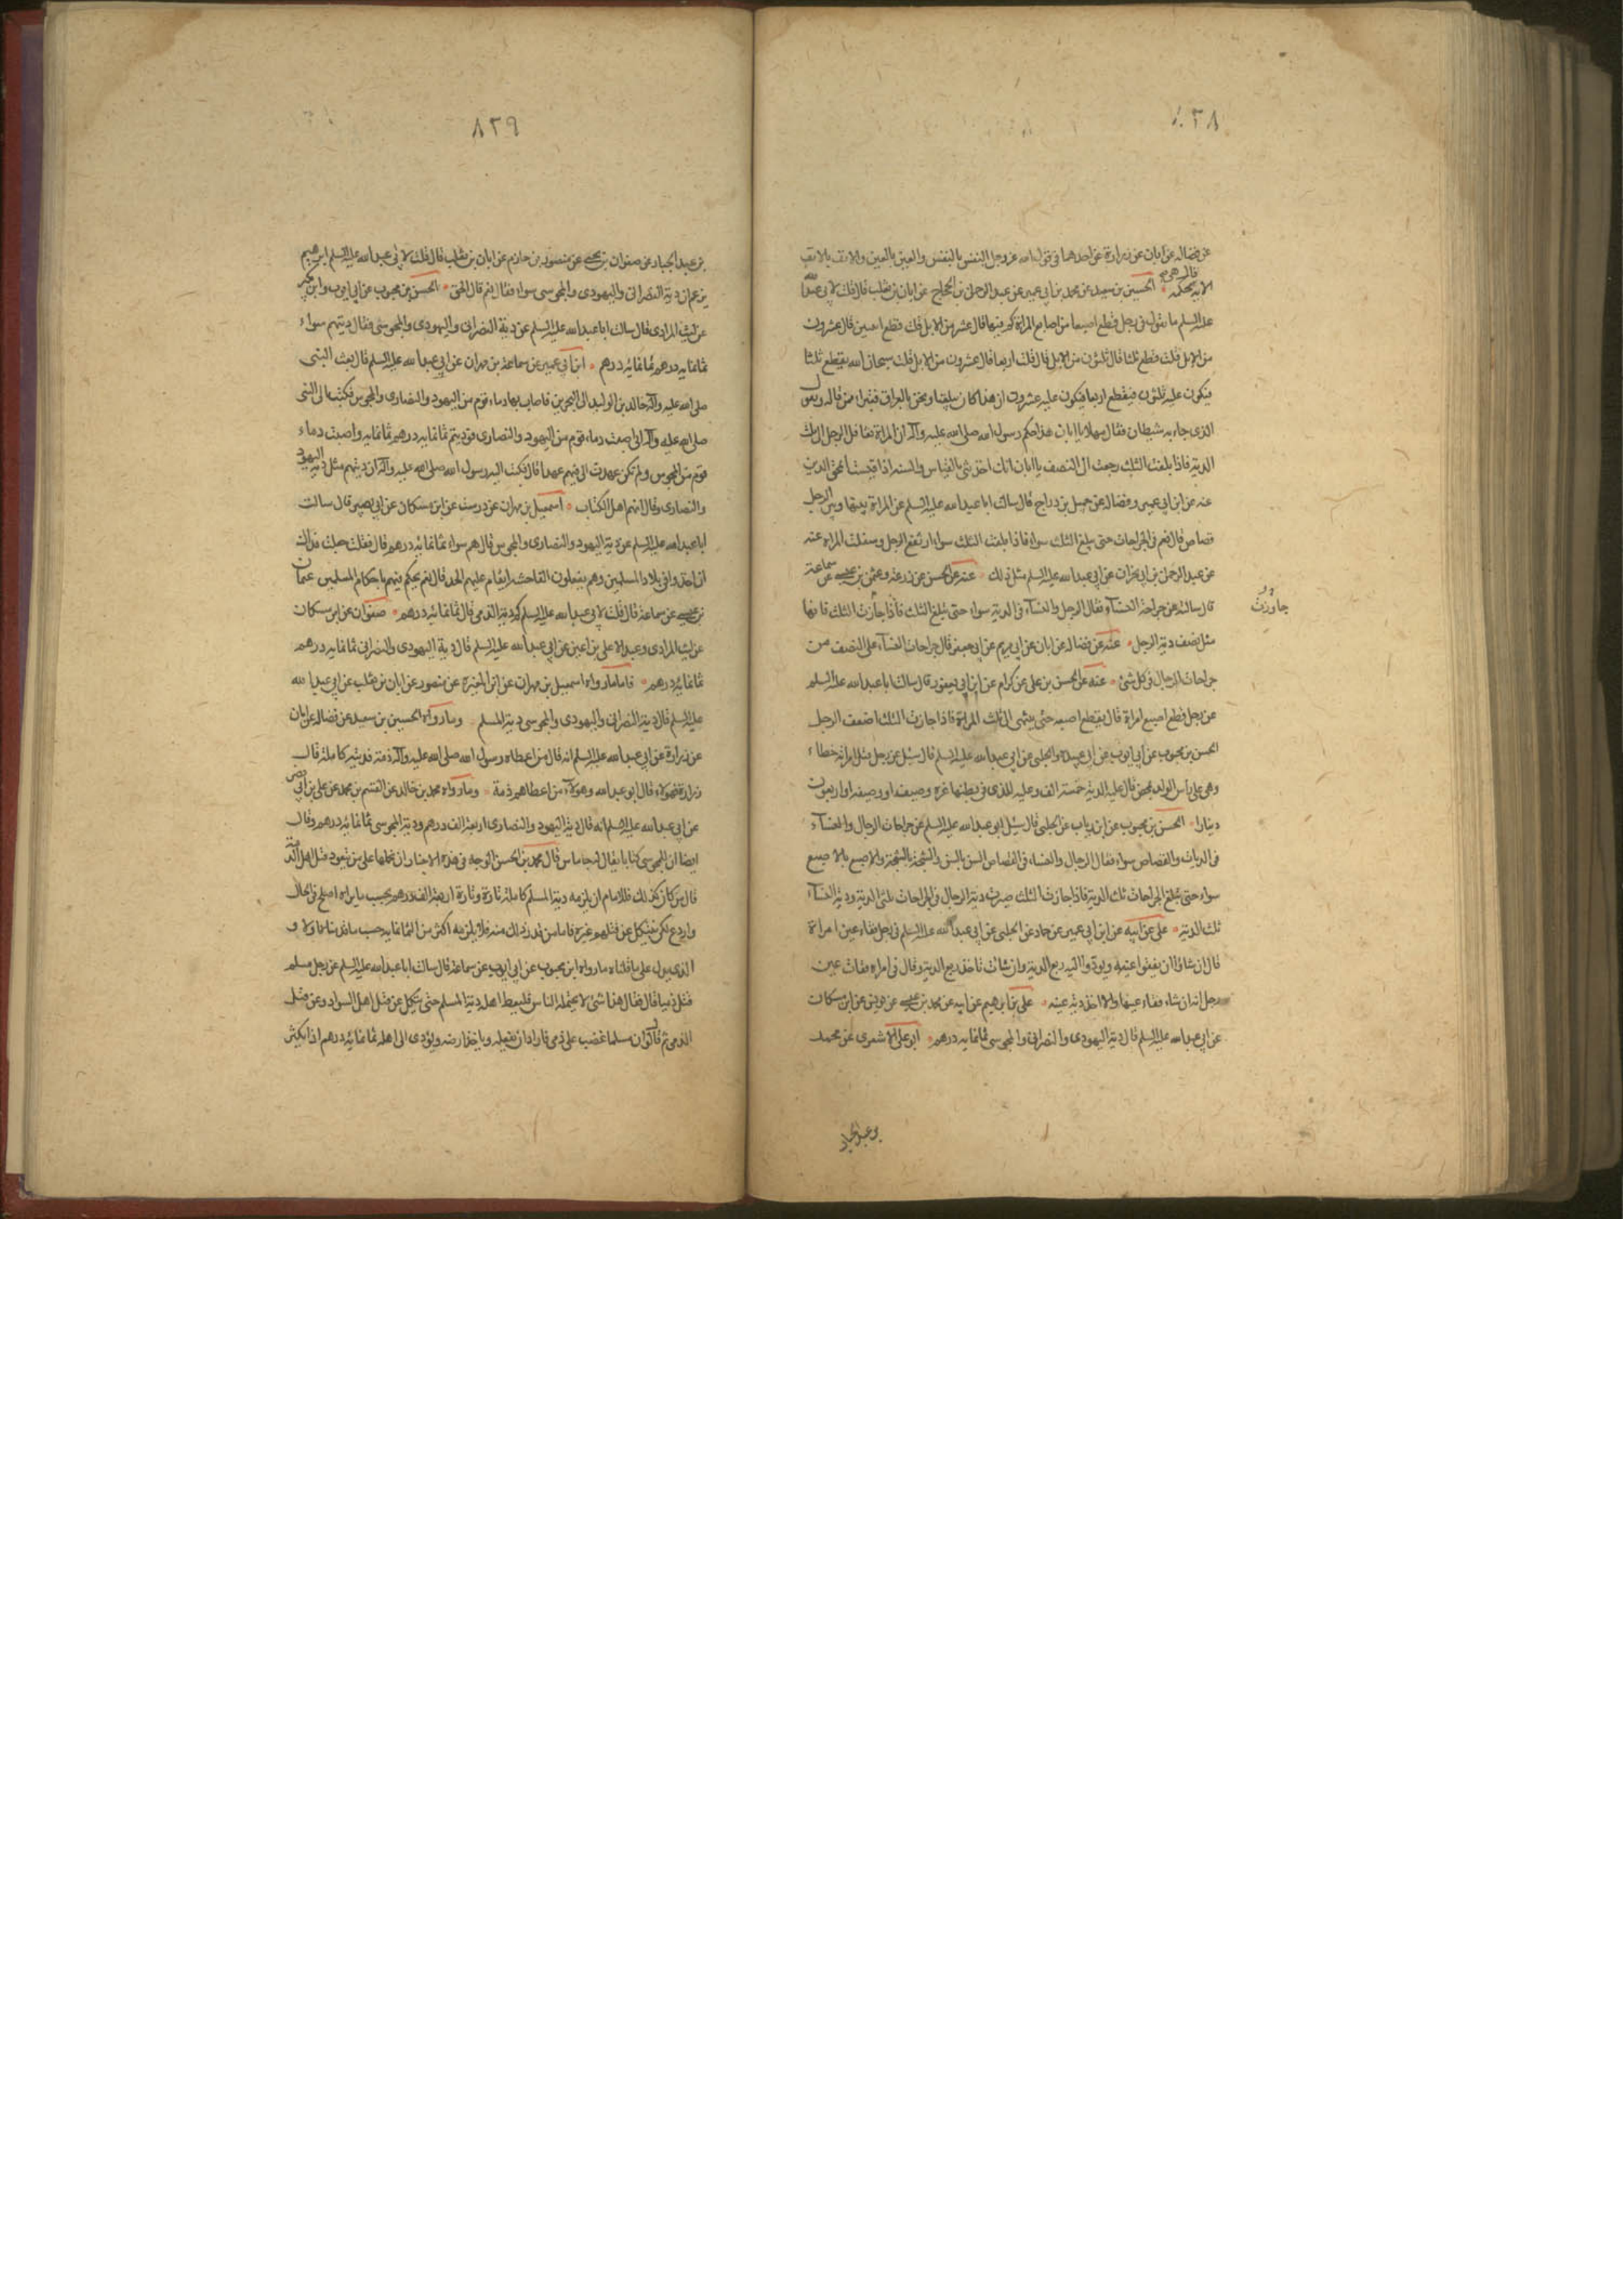 ٨٢٨
عن فضاله عن ابان عن زرارة عن احدهما فى قول الله عز وجل النفس بالنفس والعين بالعين والانف بالانف
الايه قال هى محكمه الحسين بن سعيد عن محمد بن ابى عمير عن عبد الرحمن بن الحجاج عن ابان بن تغلب قال قلت لابى عبد الله
عليه السلم ما تقول فى رجل قطع اصبعا من اصابع المراة كم فيها قال عشر من الابل قلت قطع اصبعين قال عشرون
من الابل قلت قطع ثلثا قال ثلثون من الابل قال قلت اربعا قال عشرون من الابل قلت سبحان الله يقطع ثلثا
فيكون عليه ثلثون فيقطع اربعا فيكون عليه عشرون ان هذا كان يبلغنا ونحن بالعراق فنبرا ممن قاله ونقول
الذى جاء به شيطان فقال مهلا يا ابان هذا حكم رسول الله صلى الله عليه وآله ان المراة تعاقل الرجل الى ثلث
الدية فاذا بلغت الثلث رجعت الى النصف يا ابان انك اخذتنى بالقياس والسنه اذا قيست محق الدين
عنه عن ابن ابى عمير وفضاله عن جميل بن دراج قال سالت ابا عبد الله عليه السلم عن المراة بينها وبين الرجل
قصاص قال نعم فى الجراحات حتى يبلغ الثلث سواء فاذا بلغت الثلث سواء ارتفع الرجل وسفلت المراه عنه
عن عبد الرحمن بن ابى نجران عن ابى عبد الله عليه السلم مثل ذلك عنه عن الحسن عن زرعة وعثمن بن عيسى عن سماعة
قال سالته عن جراحة النسآء فقال الرجل والنسآء فى الدية سواء حتى تبلغ الثلث فاذا جازت الثلث فانها
جاوزت
مثل نصف دية الرجل عنه عن فضاله عن ابان عن ابى مريم عن ابى جعفر قال جراحات النسآء على النصف من
جراحات الرجال فى كل شئ عنه عن الحسن بن على عن كرام عن ابن ابى يعفور قال سالت ابا عبد الله عليه السلم
عن رجل قطع اصبع امراة قال يقطع اصبعه حتى ينتهى الى ثلث المراة فاذا جازت الثلث اضعف الرجل
الحسن بن محبوب عن ابى ايوب عن ابى عبيده والحلبى عن ابى عبد الله عليه السلم قال سئل عن رجل قتل امراة خطاء
وهى على راس الولد تمخض قال عليه الدية خمسة الف وعليه للذى فى بطنها غرة وصيف او وصيفه او اربعون
دينارا الحسن بن محبوب عن ابن رياب عن الحلبى قال سئل ابو عبد الله عليه السلم عن جراحات الرجال والنسآء
فى الديات والقصاص سواء فقال الرجال والنساء فى القصاص السن بالسن والشجة بالشجة والاصبع بالاصبع
سواء حتى تبلغ الجراحات ثلث الدية فاذا جازت الثلث صيرت دية الرجال فى الجراحات ثلثى الدية ودية النسآء
ثلث الدية على عن ابيه عن ابن ابى عمير عن حماد عن الحلبى عن ابى عبد الله عليه السلم فى رجل فقاء عين امراة
قال ان شاؤا ان يفقوا عينه ويودوا اليه ربع الدية وان شاءت تاخذ ربع الدية وقال فى امراه فقات عين
رجل انه ان شاء فقاء عينها والا اخذ دية عينه على بن ابرهيم عن ابيه عن محمد بن عيسى عن يونس عن ابن مسكان
عن ابى عبد الله عليه السلم قال دية اليهودى والنصرانى والمجوسى ثمانمايه درهم ابو على الاشعرى عن محمد
بن عبد الجبار
٨٢٩
بن عبد الجبار عن صفوان بن يحيى عن منصور بن حازم عن ابان بن تغلب قال قلت لابى عبد الله عليه السلم ابرهيم
يزعم ان دية النصرانى واليهودى والمجوسى سواء فقال نعم قال الحق الحسن بن محبوب عن ابى ايوب وابن بكير
عن ليث المرادى قال سالت ابا عبد الله عليه السلم عن دية النصرانى واليهودى والمجوسى فقال ديتهم سواء
ثمانمايه درهم ثمانمائة درهم ابن ابى عمير عن سماعة بن مهران عن ابى عبد الله عليه السلم قال بعث النبى
صلى الله عليه وآله خالد بن الوليد الى البحرين فاصاب بها دماء قوم من اليهود والنصارى والمجوس فكتب الى النبى
صلى الله عليه وآله انى اصبت دماء قوم من اليهود والنصارى فوديتم ثمانمايه درهم ثمانمايه واصبت دماء
قوم من المجوس ولم تكن عهدت الى فيهم عهدا قال فكتب اليه رسول الله صلى الله عليه وآله ان ديتهم مثل دية اليهود
والنصارى وقال انهم اهل الكتاب اسمعيل بن مهران عن درست عن ابن مسكان عن ابى بصير قال سالت
ابا عبد الله عليه السلم عن دية اليهود والنصارى والمجوس قال هم سواء ثمانمائه درهم قال فقلت جعلت فداك
ان اخذوا فى بلاد المسلمين وهم يعملون الفاحشه ايقام عليهم الحد قال نعم يحكم فيهم باحكام المسلمين عثمان
بن عيسى عن سماعة قال قلت لابى عبد الله عليه السلم كم دية الذمى قال ثمانمائة درهم صفوان عن ابن مسكان
عن ليث المرادى وعبد الاعلى بن اعين عن ابى عبد الله عليه السلم قال دية اليهودى والنصرانى ثمانمايه درهم
ثمانمائة درهم فاما ما رواه اسمعيل بن مهران عن ابن المغيرة عن منصور عن ابان بن تغلب عن ابى عبد الله
عليه السلم قال دية النصرانى واليهودى والمجوسى دية المسلم وما رواه الحسين بن سعيد عن فضاله عن ابان
عن زرارة عن ابى عبد الله عليه السلم انه قال من اعطاه رسول الله صلى الله عليه وآله ذمة فديته كاملة قال
زرارة فهؤلاء قال ابو عبد الله وهؤلآء من اعطاهم ذمة وما رواه محمد بن خالد عن القسم بن محمد عن على بن ابى
عن ابى عبد الله عليه السلم انه قال دية اليهود والنصارى اربعة الف درهم ودية المجوسى ثمانمائة درهم وقال
ايضا ان للمجوسى كتابا يقال له جاماس قال محمد بن الحسن الوجه فى هذه الاخبار ان نحملها على من تعود قتل اهل الذمة
قال من كان كذلك فللامام ان يلزمه دية المسلم كاملة تارة وتارة اربعة الف درهم بحسب ما يراه اصلح فى الحال
واردع لكى ينكل عن قتلهم غيره فاما من ندر ذلك منه فلا يلزمه اكثر من الثمانمايه حسب ما قدمناه اولا و
الذى يدل على ما قلناه ما رواه ابن محبوب عن ابى ايوب عن سماعة قال سالت ابا عبد الله عليه السلم عن رجل مسلم
قتل ذميا قال فقال هذا شئ لا يحتمله الناس فليعط اهله دية المسلم حتى ينكل عن قتل اهل السواد وعن قتل
الذمى ثم قال لو ان مسلما غضب على ذمى فاراد ان يقتله وياخذ ارضه ويؤدى الى اهله ثمانمائة درهم اذا يكثر